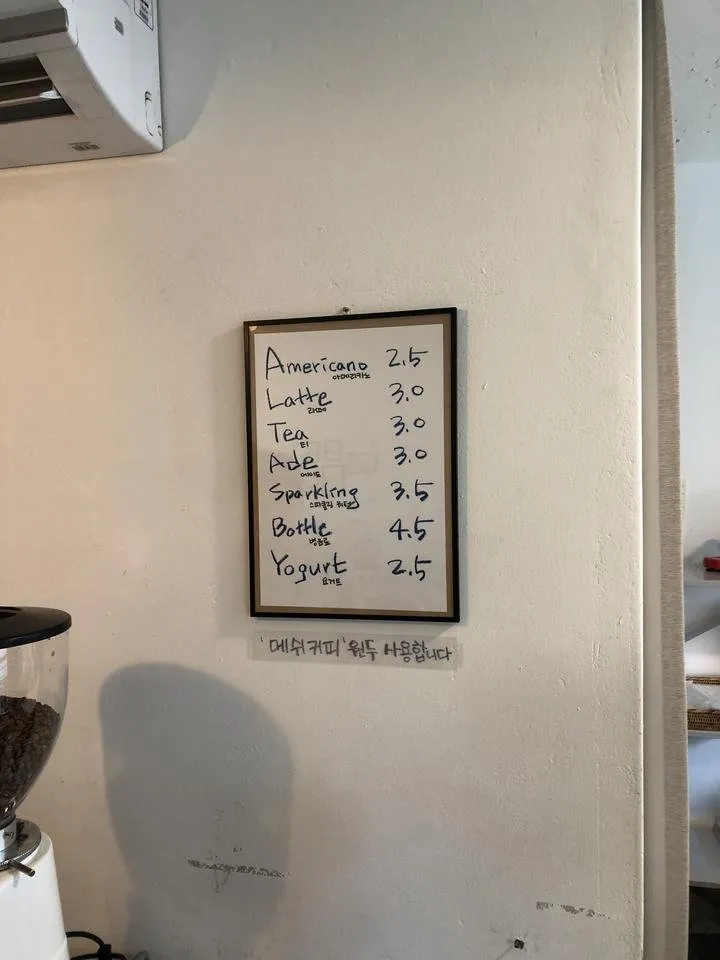 Americano 2.5
아메리카노
Latte 3.0
라떼
Tea 3.0
티
Ade 3.0
에이드
Sparkling 3.5
스파클링 워터
Bottle 4.5
병음료
Yogurt 2.5
요거트
'메쉬커피' 원두 사용합니다